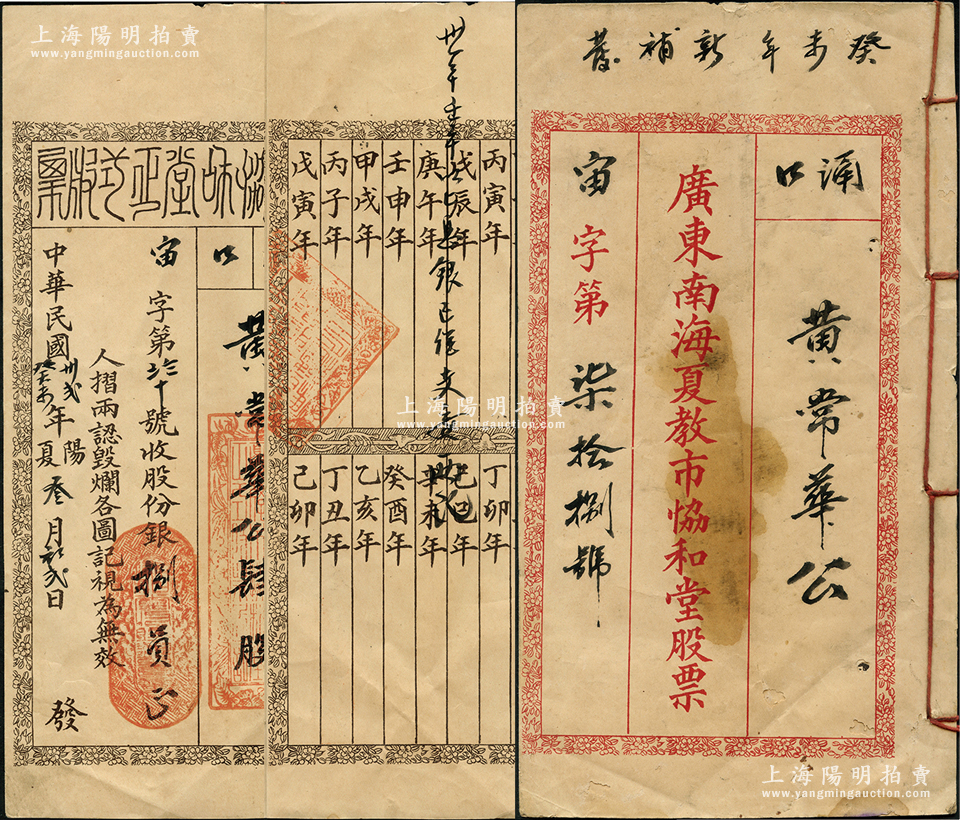 上海陽明拍賣
www.yangmingauction.com
癸未年新補發
涌口
黃常華公
廣東南海夏教市協和堂股票
宙字第柒拾捌號
丙寅年
戊辰年
庚午年
壬申年
甲戌年
丙子年
戊寅年
丁卯年
己巳年
辛未年
癸酉年
乙亥年
丁丑年
己卯年
卅一年壬午
銀已經支
協和堂正式股票
口
黃常華公肆股
宙字第
號收股份銀捌員正
人摺兩認毀爛各圖記視為無效
中華民國卅弍癸未年陽夏叁月初弍日
發
上海陽明拍賣
www.yangmingauction.com
上海陽明拍賣
www.yangmingauction.com